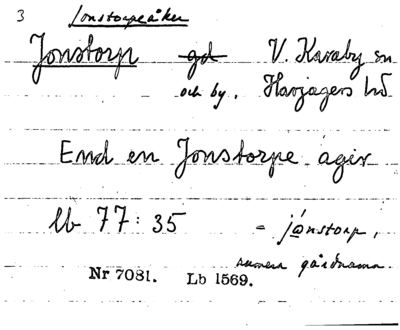 3 Jonstorpeåker
Jonstorp gd V. Karaby sn
och by. Harjagers hd
End en Jonstorpe ager
lb 77:35 = jånstorp,
numera gårdnamn.
Nr 7081. Lb 1569.